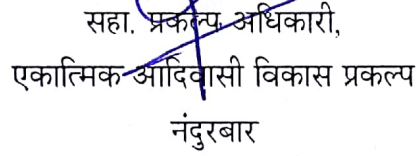 सहा. प्रकल्प अधिकारी,
एकात्मिक आदिवासी विकास प्रकल्प
नंदुरबार